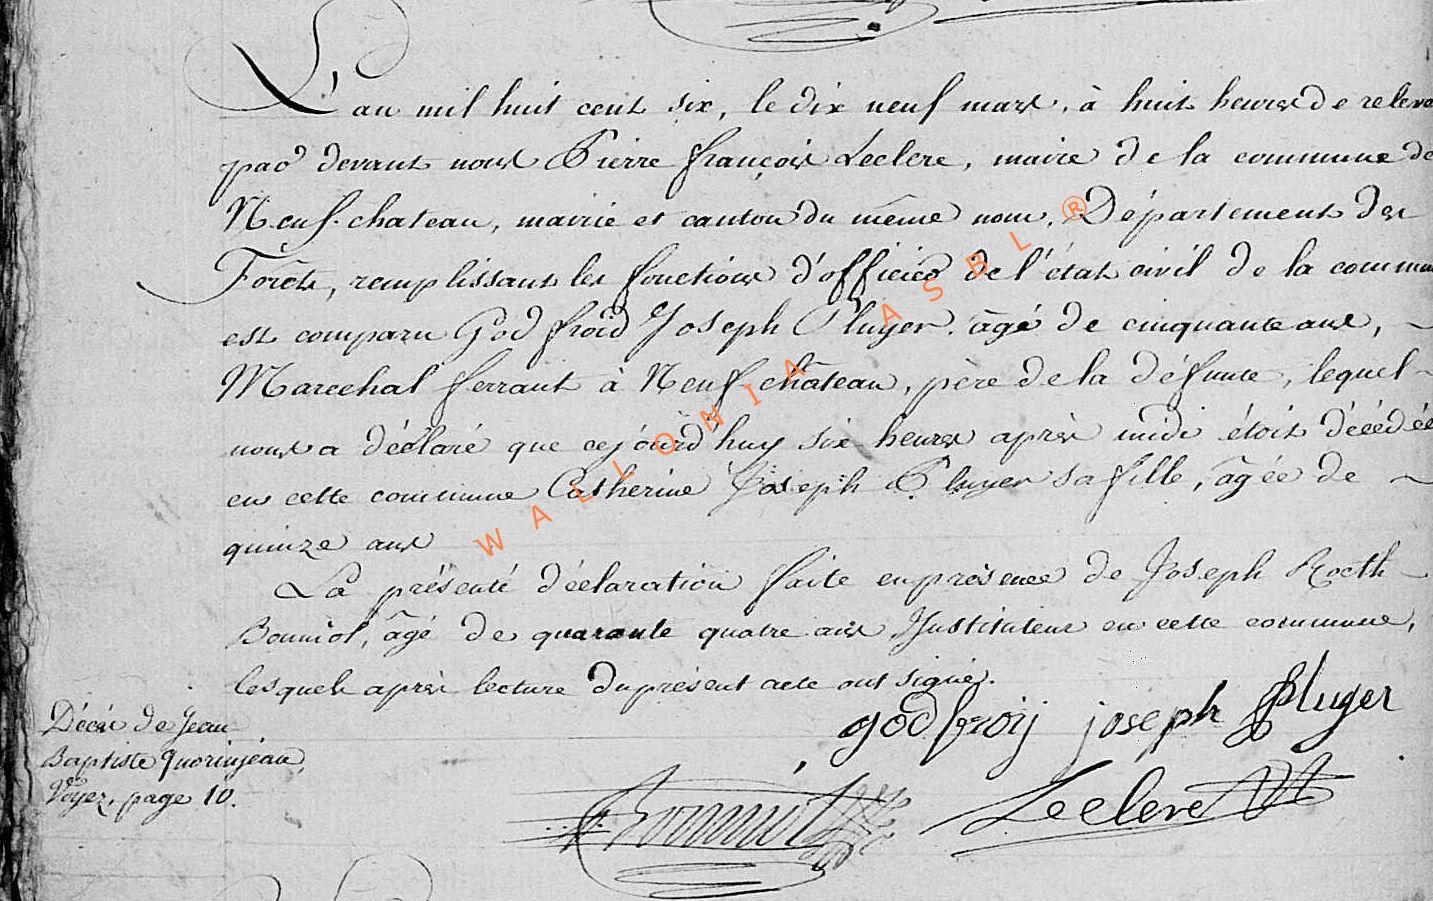 L'an mil huit cent six, le dix neuf mars, à huit heures de releve
par devant nous Pierre françois Leclerc, maire de la commune de
Neuf-chateau, mairie et canton du même nom, Département des
Forêts, remplissant les fonctions d'officier de l'état civil de la commun
est comparu Godfroid Joseph Pluyer, âgé de cinquante ans, ~
Marechal ferrant à Neufchâteau, père de la défunte, lequel -
nous a déclaré que cejourd'huy six heures après midi étoit décédée
en cette commune Catherine Joseph Pluyer sa fille, âgée de ~
quinze ans
La présente déclaration faite en présence de Joseph Roch -
Bonniol, âgé de quarante quatre ans Instituteur en cette commune,
lesquels après lecture du présent acte ont signé.
godfroij joseph Pluyer
Décès de Jean
Baptiste Quorinjean,
Voyez, page 10.
Bonniol
Leclerc
WALLONIA ASBL ®